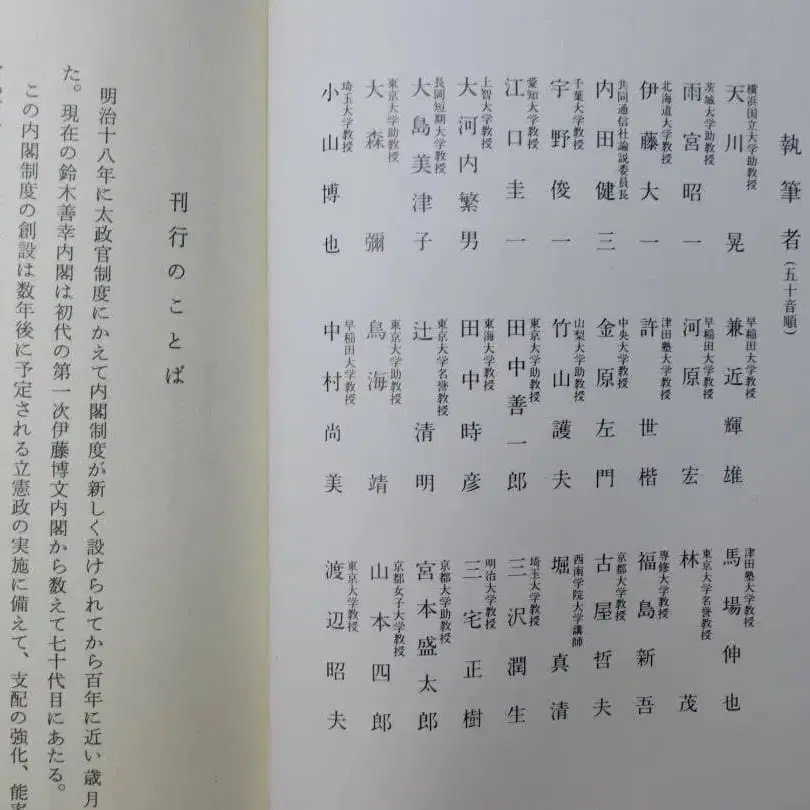 執筆者(五十音順)
横浜国立大学助教授
天川晃
茨城大学助教授
雨宮昭一
北海道大学教授
伊藤大一
共同通信社論説委員長
内田健三
千葉大学教授
宇野俊一
愛知大学教授
江口圭一
上智大学教授
大河内繁男
長岡短期大学教授
大島美津子
東京大学助教授
大森彌
埼玉大学教授
小山博也
早稲田大学教授
兼近輝雄
早稲田大学教授
河原宏
津田塾大学教授
許世楷
中央大学教授
金原左門
山梨大学助教授
竹山護夫
東京大学助教授
田中善一郎
東海大学教授
田中時彦
東京大学名誉教授
辻清明
東京大学助教授
鳥海靖
早稲田大学教授
中村尚美
津田塾大学教授
馬場伸也
東京大学名誉教授
林茂
専修大学教授
福島新吾
京都大学教授
古屋哲夫
西南学院大学講師
堀真清
埼玉大学教授
三沢潤生
明治大学教授
三宅正樹
京都大学助教授
宮本盛太郎
京都女子大学教授
山本四郎
東京大学教授
渡辺昭夫
刊行のことば
明治十八年に太政官制度にかえて内閣制度が新しく設けられてから百年に近い歳月
た。現在の鈴木善幸内閣は初代の第一次伊藤博文内閣から数えて七十代目にあたる。
この内閣制度の創設は数年後に予定される立憲政の実施に備えて、支配の強化、能率